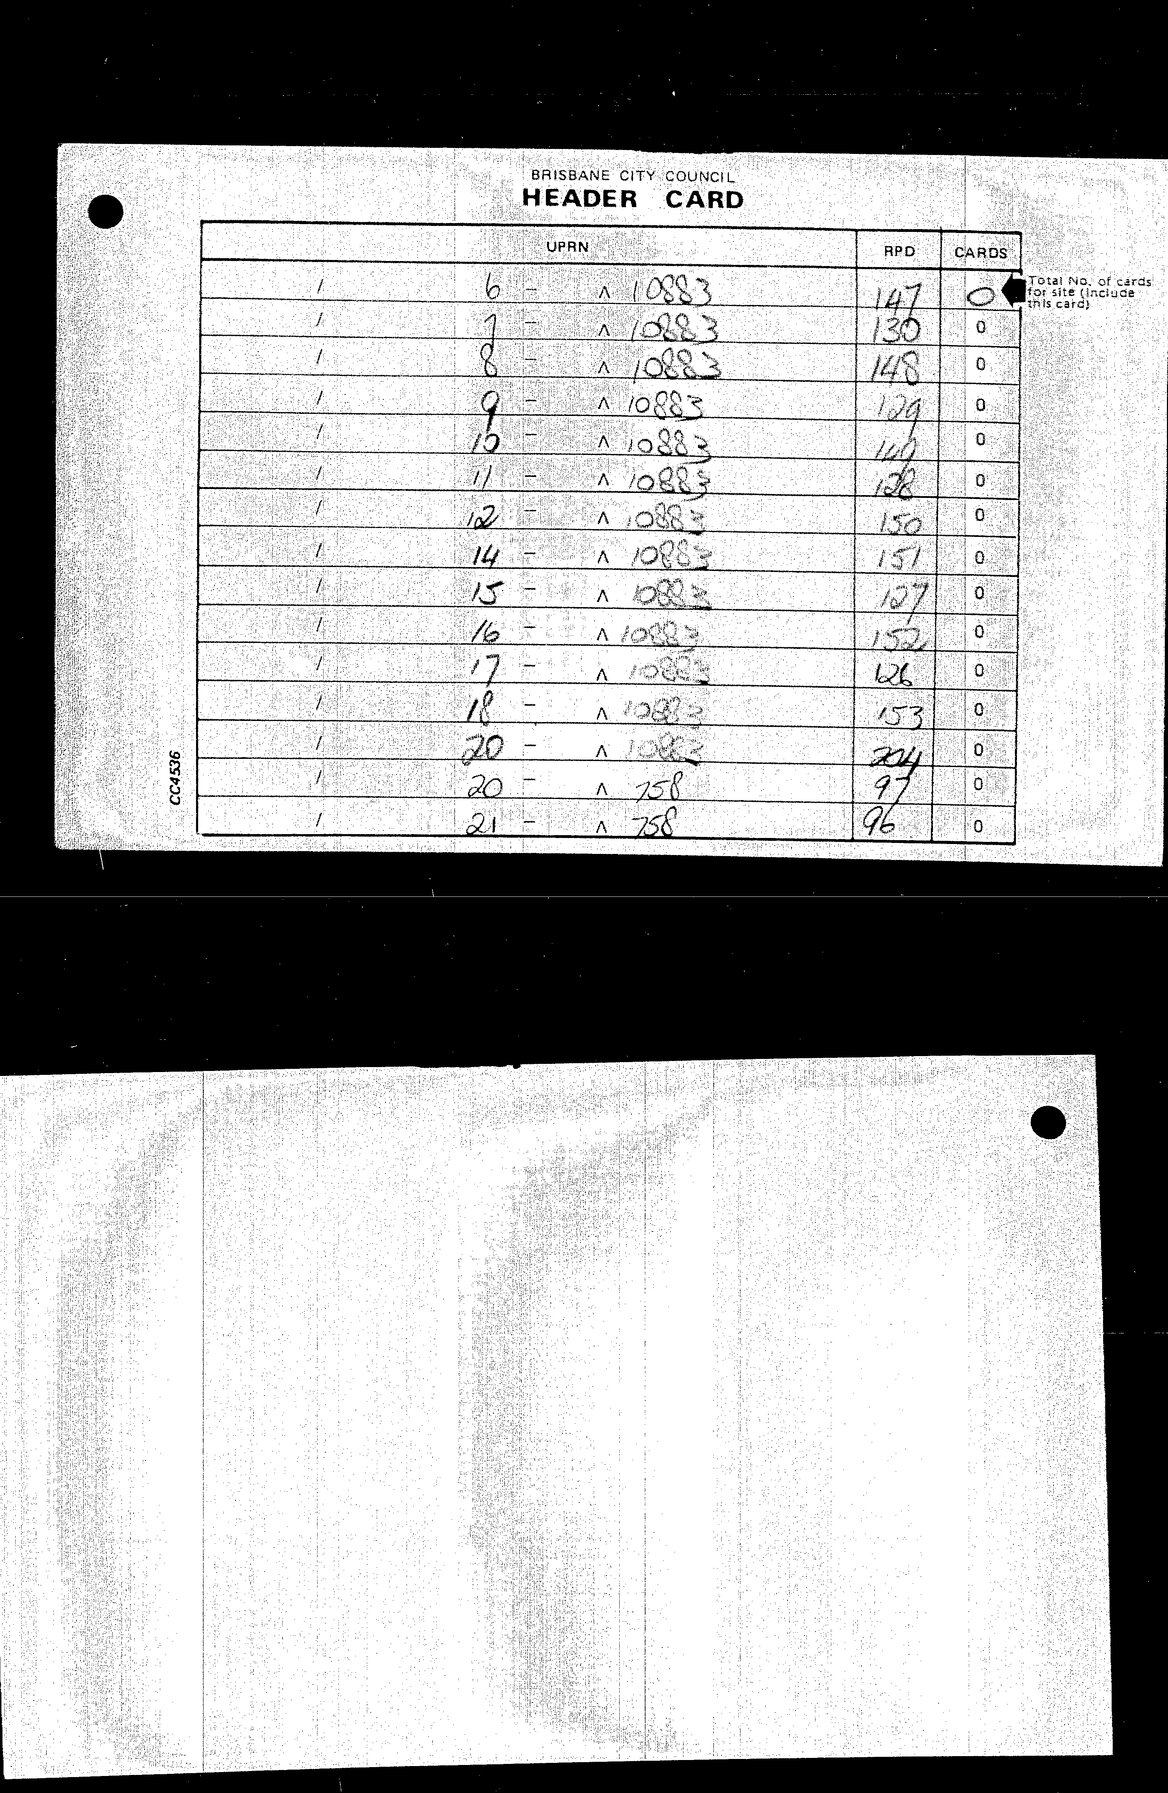 BRISBANE CITY COUNCIL
HEADER CARD
UPRN RPD CARDS
Total No. of cards
for site (include
this card)
/ 6 - ^ 10883 147 0
/ 7 - ^ 10883 130 0
/ 8 - ^ 10883 148 0
/ 9 - ^ 10883 129 0
/ 10 - ^ 10883 0
/ 11 - ^ 10883 128 0
/ 12 - ^ 10883 150 0
/ 14 - ^ 10883 151 0
/ 15 - ^ 10883 127 0
/ 16 - ^ 10883 152 0
/ 17 - ^ 10883 126 0
/ 18 - ^ 10883 153 0
/ 20 - ^ 10883 204 0
/ 20 - ^ 758 97 0
/ 21 - ^ 758 96 0
CC4536